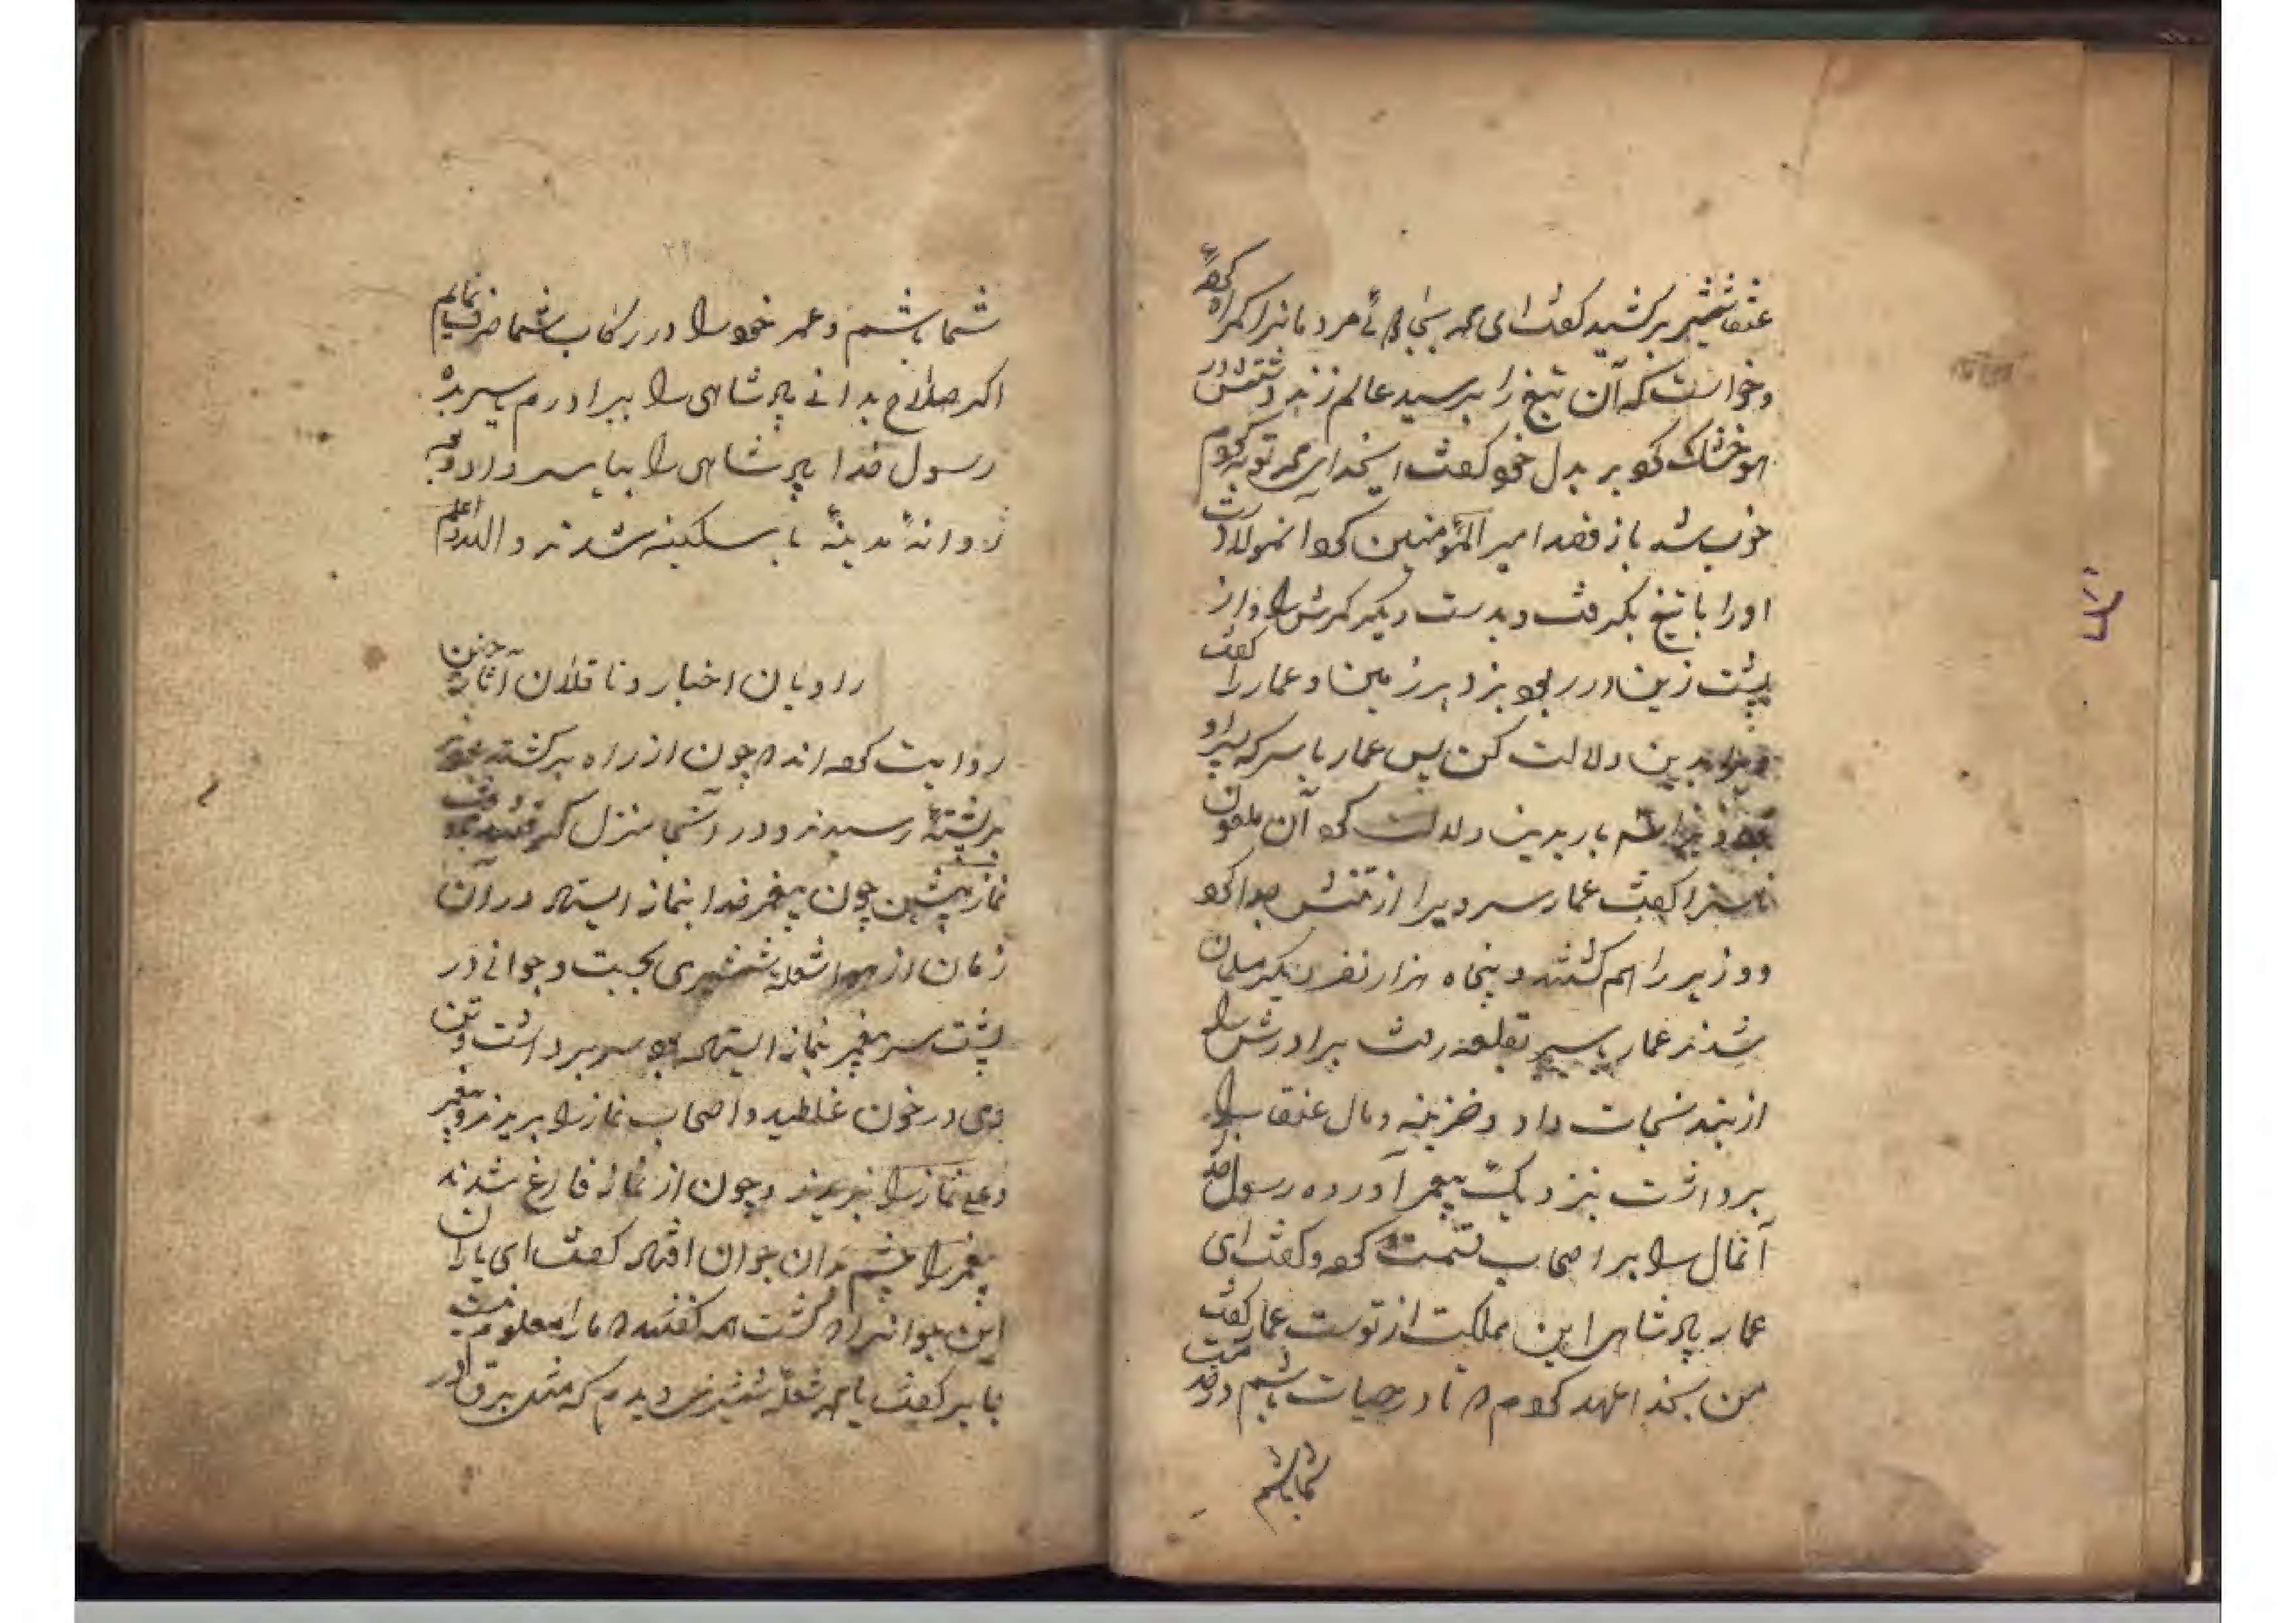 عنقا شمشیر برکشید گفت ای محمد بسی مردمانرا گمراه کردهٔ
وخواست که آن تیغ را بر سید عالم زند دستش در
هوا خشک کو بر بدل خو گفت ای خدای محمد توبه کردم
خوب شد باز قصد امیر المؤمنین کرد انمولا دست
اورا با تیغ بگرفت و بدست دیگر کمرش را و از
پشت زین در ربود بزد بر زمین و عمار را گفت
ویرا بدین دلالت کن پس عمار یاسر که بیراو
بار بدین دلالت کرد آن ملعون
ناسزا گفت عمار سر ویرا از تنش جدا کرد
و وزیر را هم کشتند و پنجاه هزار نفر دیگر مسلمان
شدند عمار یاسر بقلعه رفت برادرش را
از بند نجات داد و خزینه و مال عنقا را
برداشت نزدیک پیغمبر آورده رسول خدا
آنمال را بر اصحاب قسمت کرد و گفت ای
عمار پادشاهی این مملکت از توست عمار گفت
من بخدا عهد کردم که تا در حیات باشم در خدمت
شما باشم
شما باشم و عمر خود را در رکاب شما صرف نمایم
اگر صلاح بدانی پادشاهی را ببرادرم بسپرید
رسول خدا پادشاهی را بیاسر داد و
روانهٔ مدینهٔ با سکینه شدند والله اعلم
راویان اخبار و ناقلان آثار چنین
روایت کرده اند که چون از راه برگشتند
بر پشتهٔ رسیدند و در آنجا منزل گرفتند وقت
نماز پیشین چون پیغمبر خدا بنماز ایستاد در آن
زمان از هوا شعلهٔ شمشیری بجست و جوانی در
پشت سر پیغمبر بنماز ایستاده بود سر برداشت و تن
وی در خون غلطید و اصحاب نماز را بریدند و پیغمبر
و علی نماز را نبریدند و چون از نماز فارغ شدند
پیغمبر را چشم بدان جوان افتاد گفت ای یاران
این جوانرا که کشت همه گفتند که ما را معلوم نیست
جابر گفت یا محمد شعلهٔ شمشیری دیدم که مثل برق در